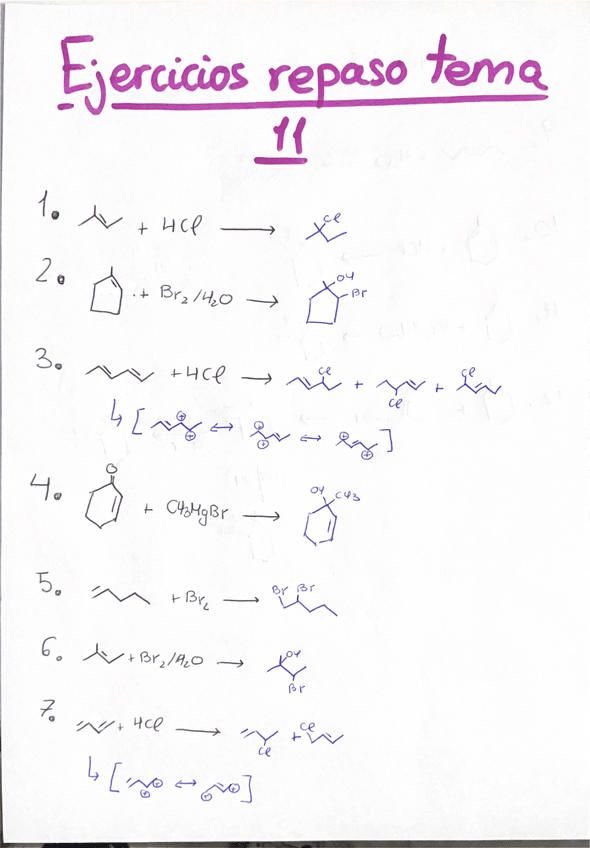 Ejercicios repaso tema
11
1. + HCl → Cl
2. + Br2/H2O → OH Br
3. + HCl → Cl + Cl + Cl
↳ [ ⊕ ⊕ ↔ ⊕ ⊕ ↔ ⊕ ⊕ ]
4. O + CH3MgBr → OH CH3
5. + Br2 → Br Br
6. + Br2/H2O → OH Br
7. + HCl → Cl + Cl
↳ [ ⊕ ⊕ ↔ ⊕ ⊕ ]